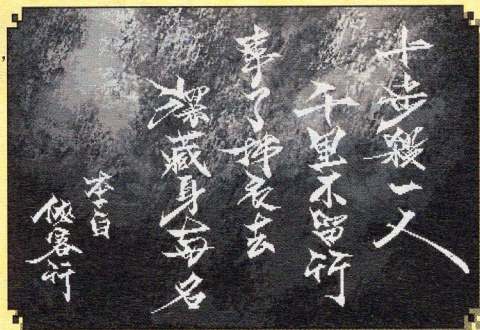 十步殺一人
千里不留行
事了拂衣去
深藏身與名
李白
俠客行